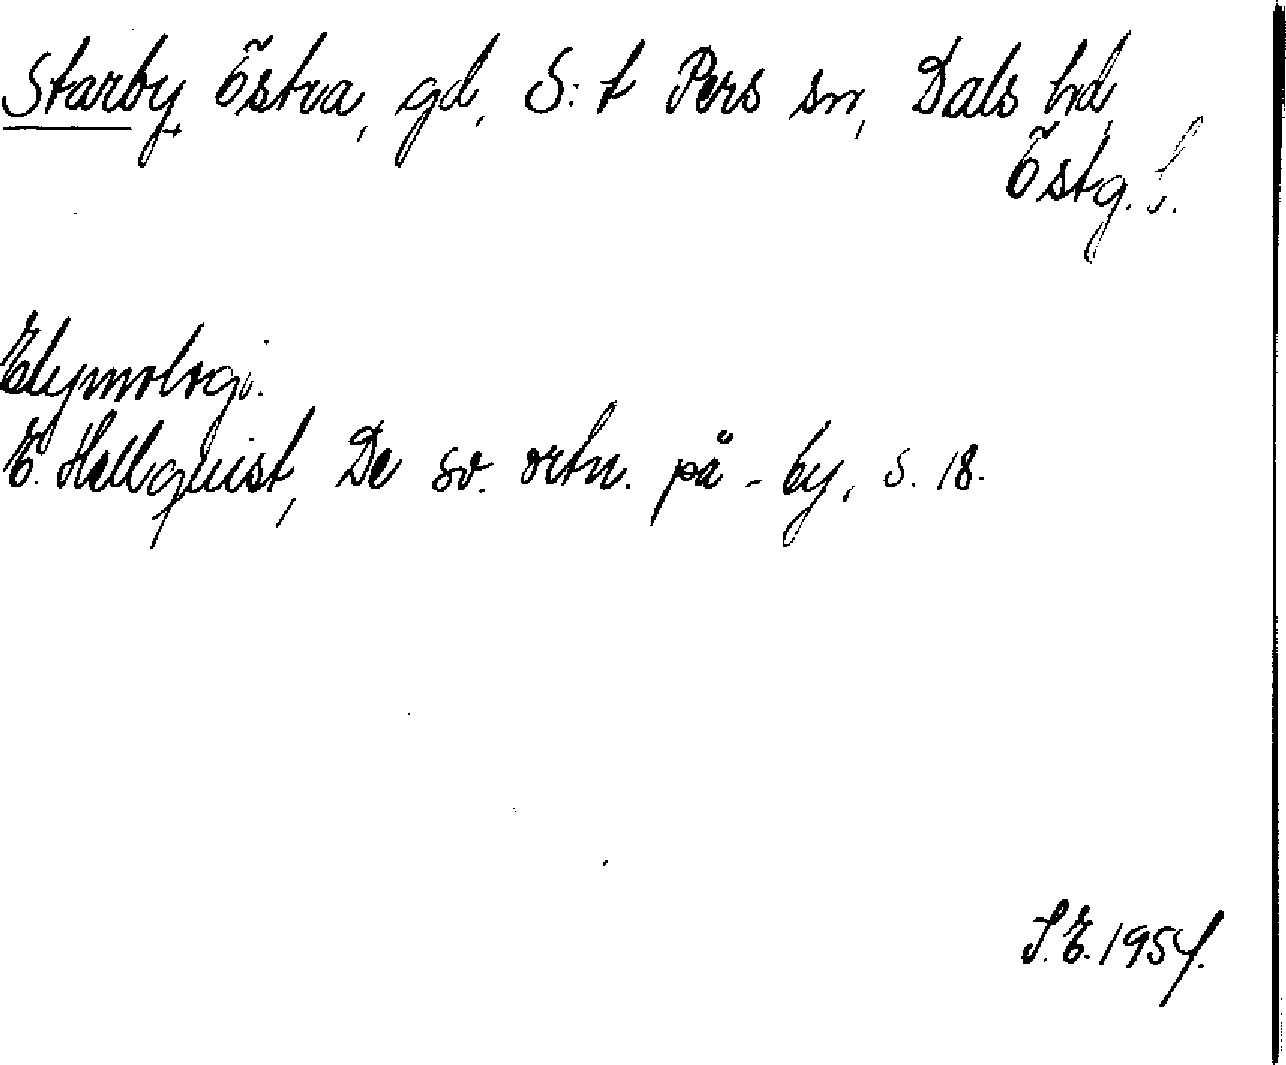 Starby, Östra, gd, S:t Pers sn, Dals hd,
Östg. l.
Etymologi.
E. Hellquist, De sv. ortn. på -by, s. 18.
S.E. 1954.